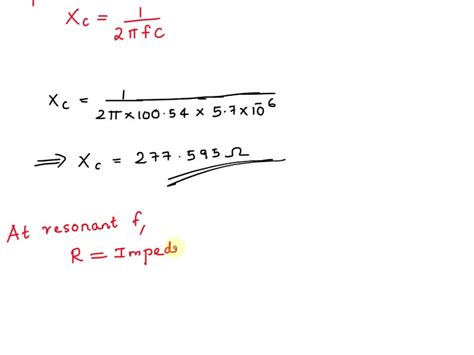 Xc = 1/2πfC
Xc = 1/2π×100.54 × 5.7×10^-6
⟹ Xc = 277.595Ω
At resonant f,
R = Imped